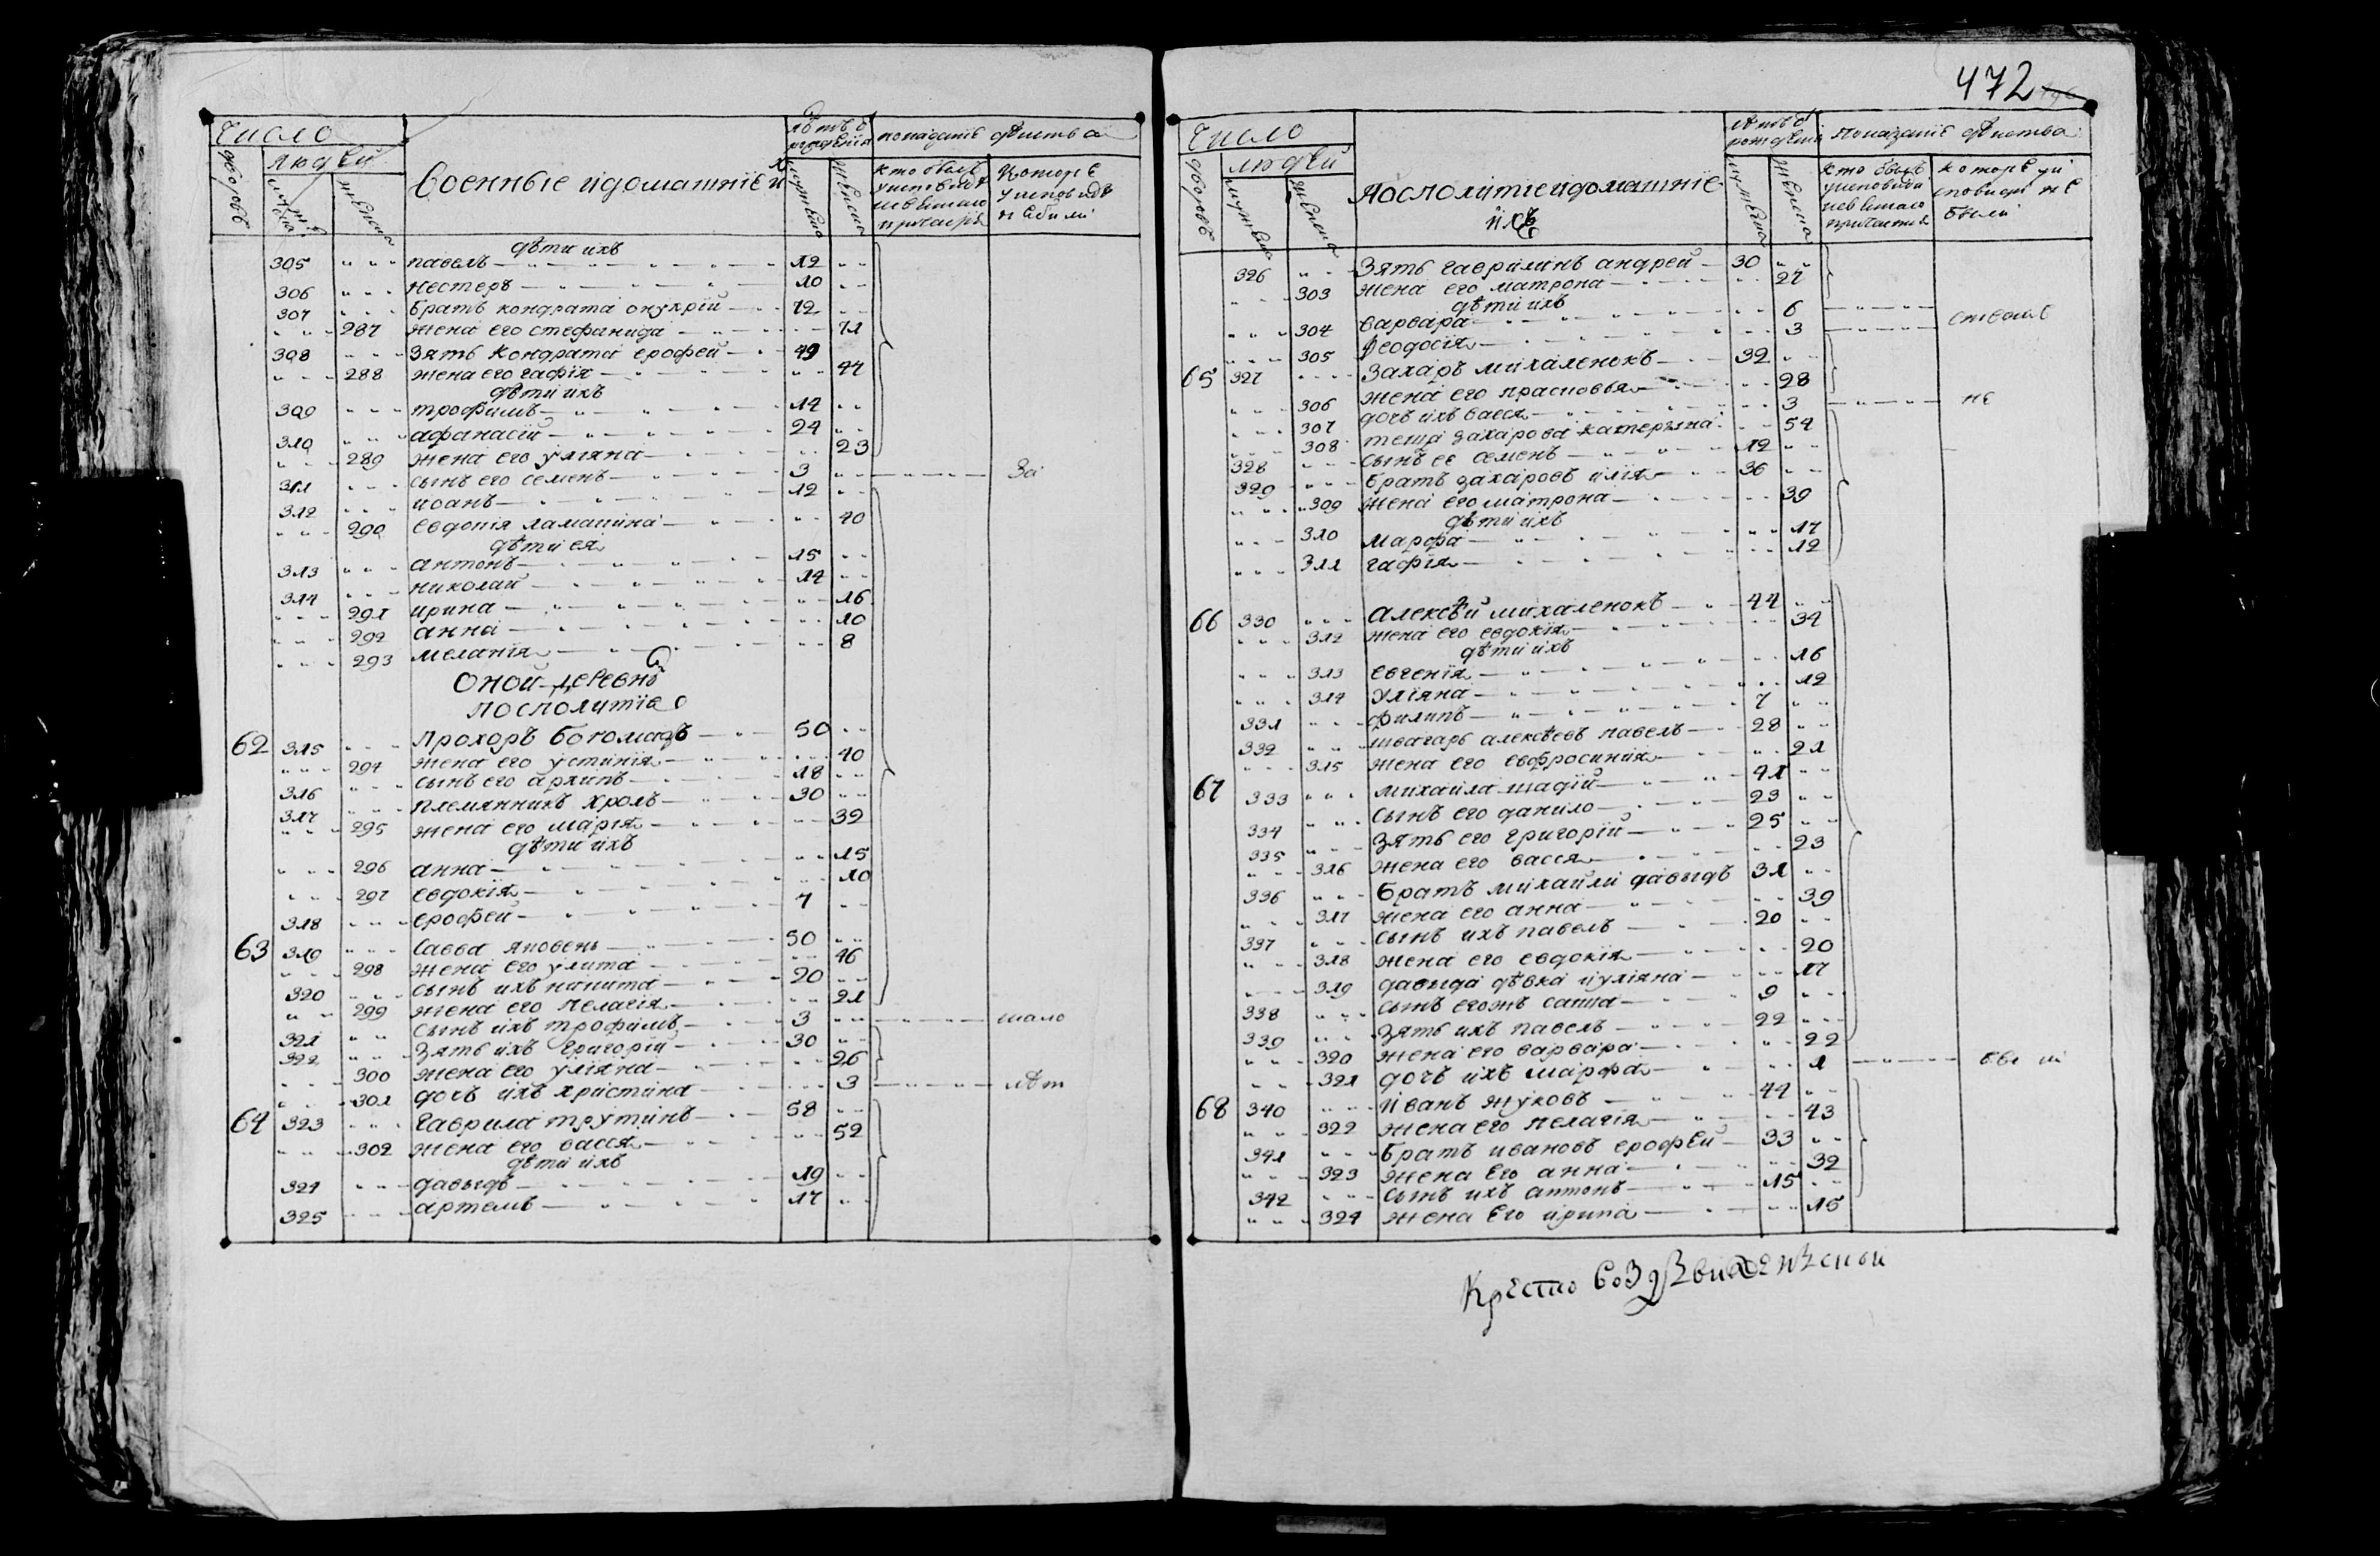 472
Число
людей
дворовъ
мужеска
женска
Военные и домашнїе ихъ
лѣтъ ѿ рождения
мужеска
женска
показанїе дѣиства
кто былъ у исповѣди и св҃таго причастїя
Которїе у исповѣдѣ не были
дѣти ихъ
305 павелъ 12
306 нестеръ 10
307 братъ кондрата онухрїй 72
287 жена его стефанида 71
308 зять кондрата ерофей 49
288 жена его гафія 44
дѣти ихъ
309 трофимъ 14
310 афанасїй 24
289 жена его уліяна 23
311 сынъ его семенъ 3 За
312 иоанъ 12
290 евдокія ламашина 40
дѣти ея
313 антонъ 15
314 николай 14
291 ирина 16
292 анна 10
293 меланїя 8
Оной деревнѣ
посполитїе
62 315 Прохоръ богомазъ 50
294 жена его устинія 40
316 сынъ его архипъ 18
317 племянникъ хролъ 30
295 жена его марія 32
дѣти ихъ
296 анна 15
297 евдокія 10
318 ерофей 7
63 319 Савва яковень 50
298 жена его улита 46
320 сынъ ихъ никита 20
299 жена его пелагія 21
321 сынъ ихъ трофимъ 3 мало
322 зять ихъ григорїй 30
300 жена его уліяна 26
301 дочь ихъ христина 3 лѣт
64 323 Гаврила трутинъ 58
302 жена его васся 52
дѣти ихъ
324 давыдъ 19
325 артемъ 17
Число
людей
дворовъ
мужеска
женска
Посполитїе и домашнїе ихъ
лѣтъ ѿ рождения
мужеска
женска
Показанїе дѣиства
кто былъ у исповѣди и св҃таго причастия
которїе у исповиди не были
326 Зять гаврилинъ андрей 30
303 жена его матрона 27
дѣти ихъ
304 варвара 6
305 феодосія 3
65 327 Захаръ михаленокъ 32
306 жена его прасковвя 28
307 дочь ихъ васся 3 не
308 теща захарова катерына 54
328 сынъ ее семенъ 12
329 братъ захаровъ илїя 36
309 жена его матрона 39
дѣти ихъ
310 марфа 17
311 гафїя 12
66 330 Алексѣй михаленокъ 44
312 жена его евдокія 34
дѣти ихъ
313 евгенїя 16
314 улїяна 12
331 филипъ 7
332 швагаръ алексѣевъ павелъ 28
315 жена его евфросинія 21
67 333 михайла шадїй 41
334 сынъ его данило 23
335 зять его григорїй 25
316 жена его васся 23
336 братъ михайли давыдъ 31
317 жена его анна 39
337 сынъ ихъ павелъ 20
318 жена его евдокія 20
319 давида дѣвка иуліяна 17
338 сынъ егожъ савка 9
339 зять ихъ павелъ 22
320 жена его варвара 22
321 дочь ихъ марфа 1
68 340 Иванъ жуковъ 44
322 жена его пелагія 43
341 братъ ивановъ ерофѣй 33
323 жена его анна 32
342 сынъ ихъ антонъ 15
324 жена его ирина 15
Крестовоздвиженской